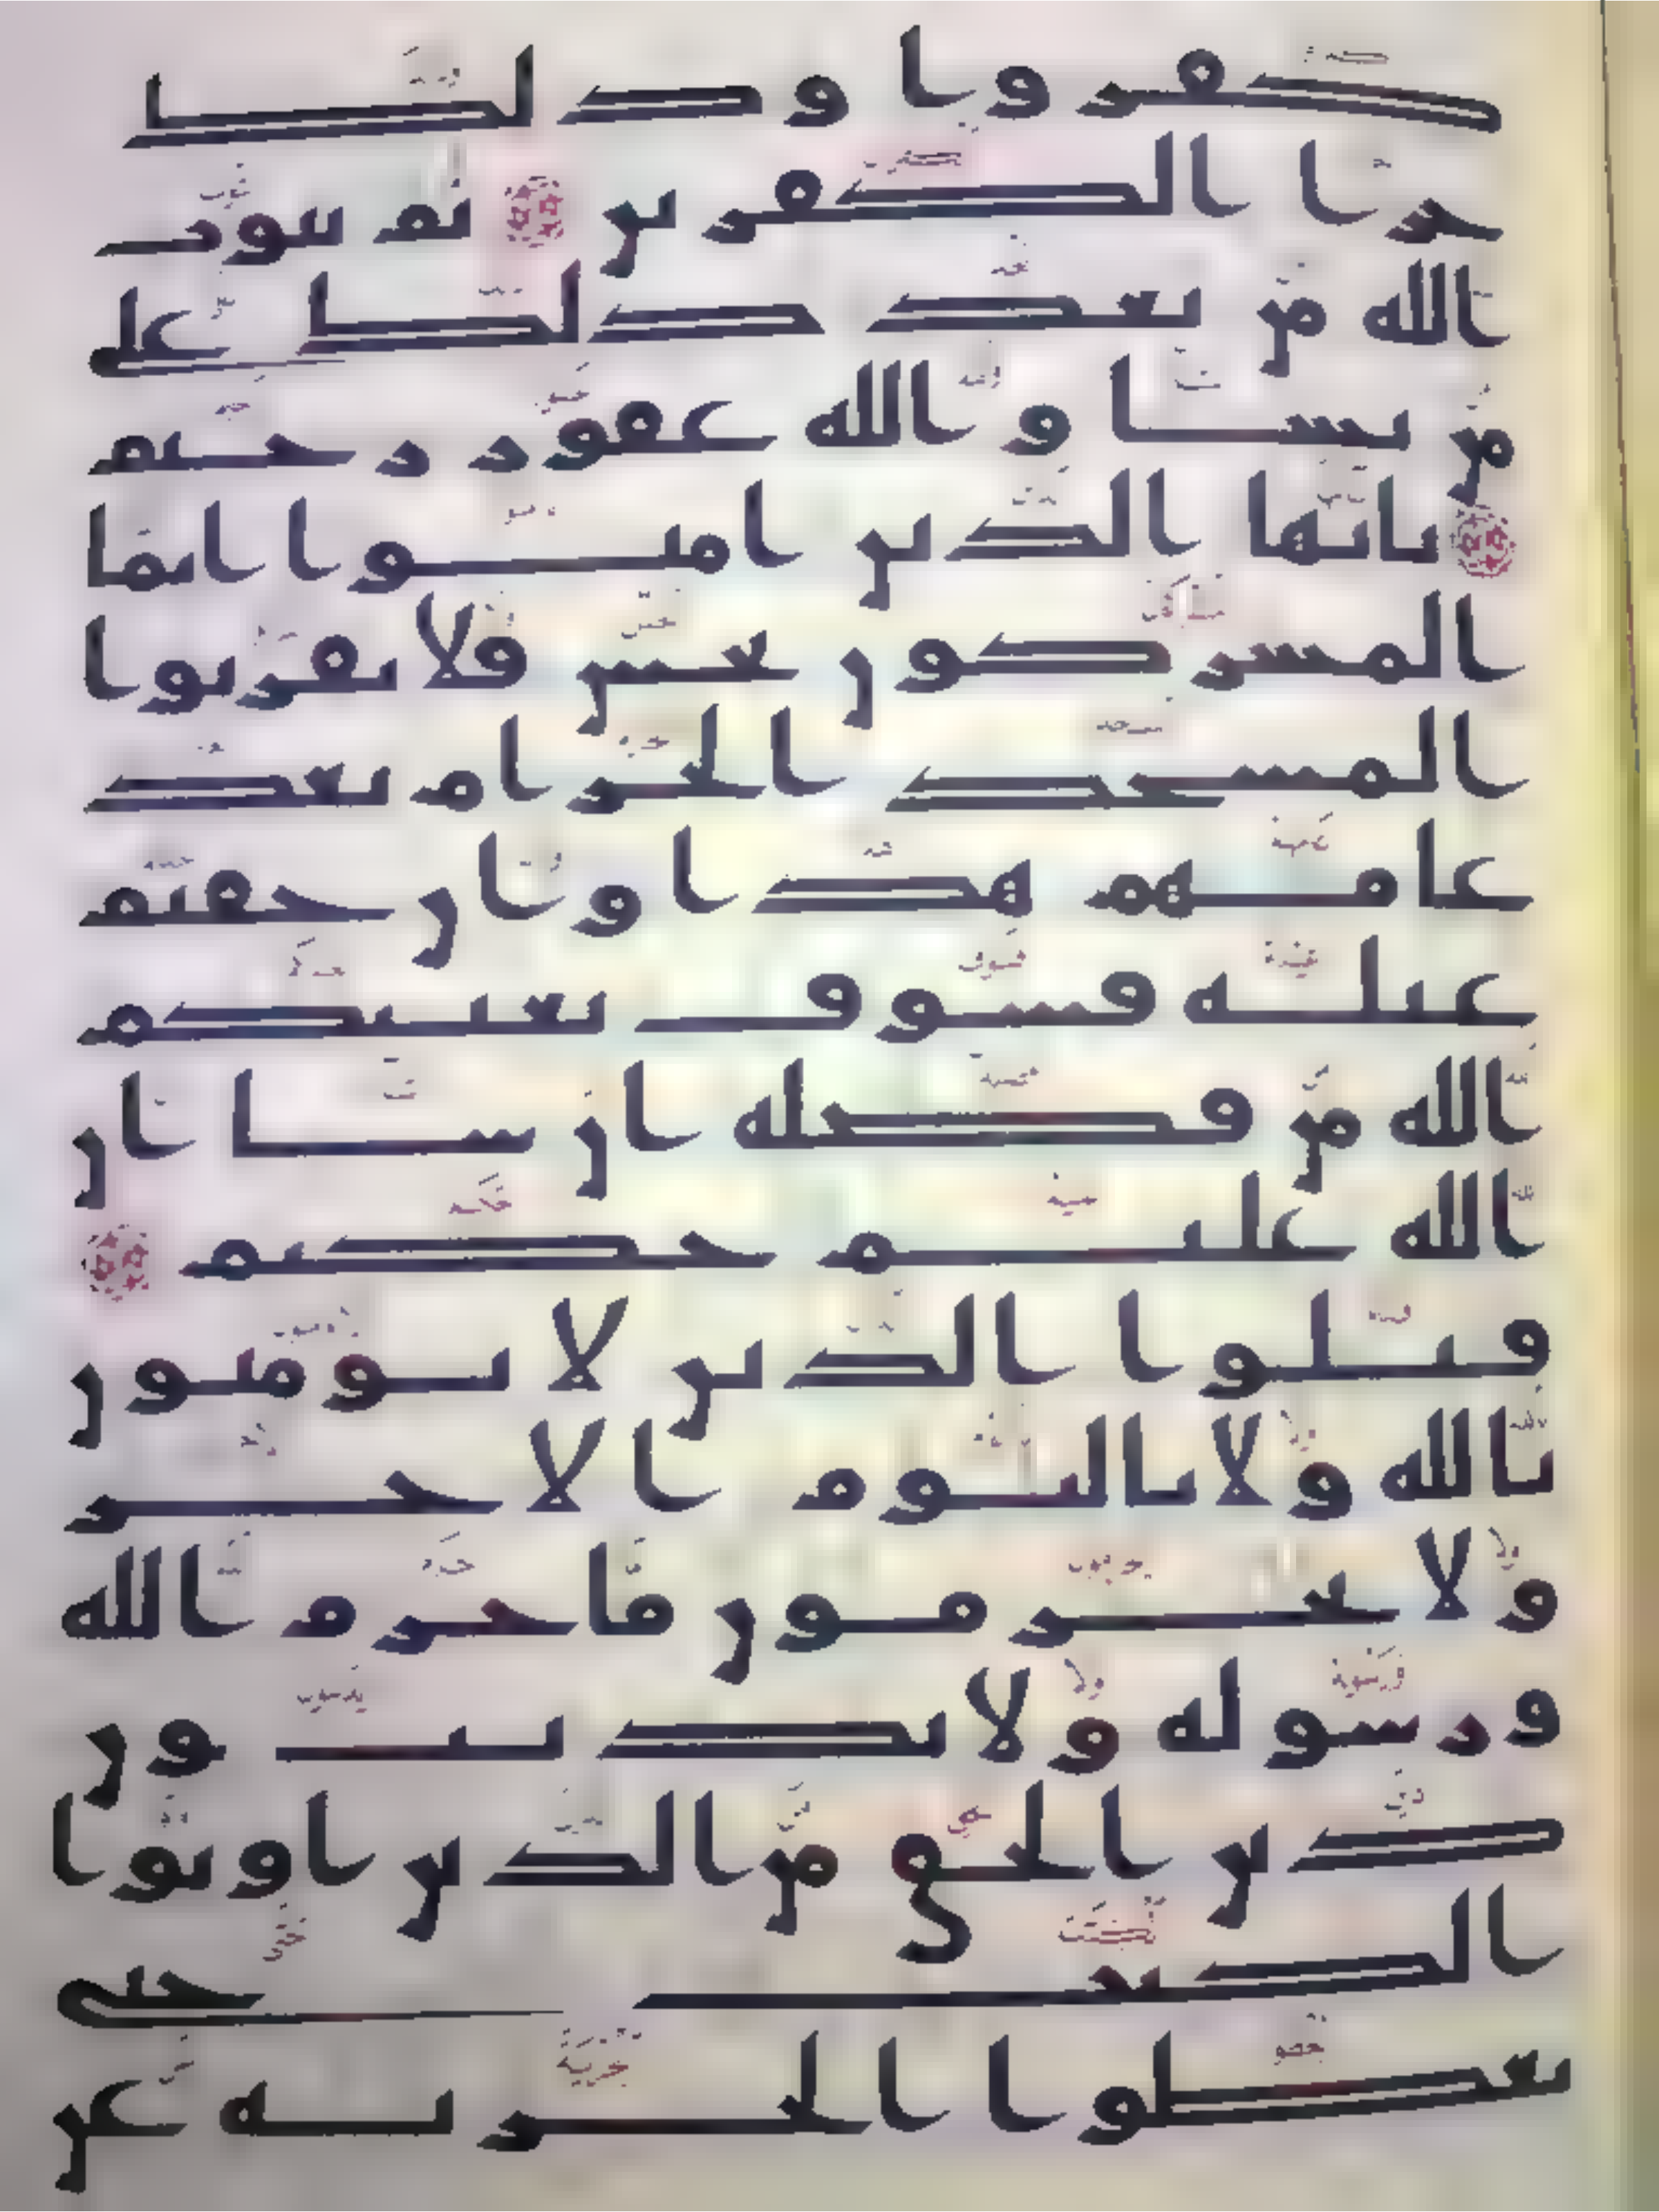 كفروا وذلك
جزا الكفرين ثم يتوب
الله من بعد ذلك على
من يشا والله غفور رحيم
يايها الذين امنوا انما
المشركون نجس فلا يقربوا
المسجد الحرام بعد
عامهم هذا وان خفتم
عيلة فسوف يغنيكم
الله من فضله ان شا ان
الله عليم حكيم
قتلوا الذين لا يومنون
بالله ولا باليوم الاخر
ولا يحرمون ما حرم الله
ورسوله ولا يدينون
دين الحق من الذين اوتوا
الكتب حتى
يعطوا الجزية عن